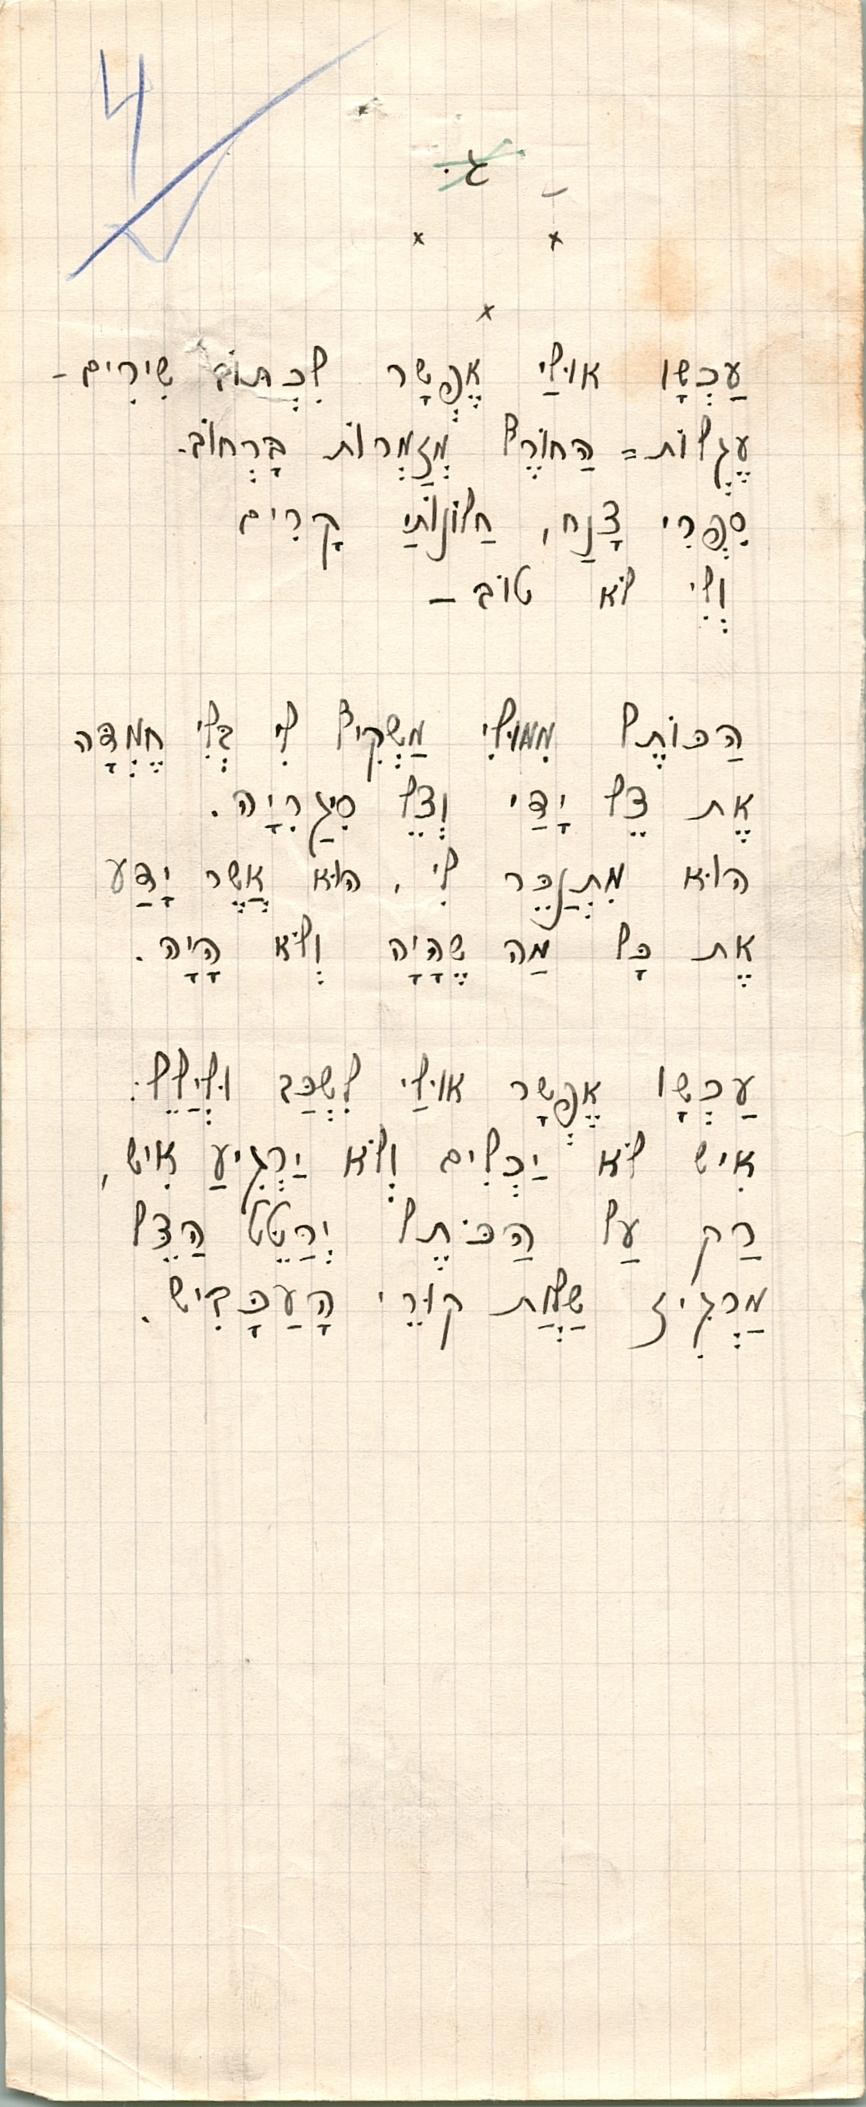 4
ג.
x x
x
עַכְשָׁו אוּלַי אֶפְשָׁר לִכְתּוֹב שִׁירִים –
עֶגְלוֹת = הַחוֹרֶף מְזַמְּרוֹת בָּרְחוֹב.
סִפְרִי צָנַח, חַלּוֹנוֹתַי קָרִים
וְלִי לֹא טוֹב –
הַכּוֹתֶל מִמּוּלִי מַשְׁקִיף לִי בְּלִי חֶמְדָּה
אֶת צֵל יָדַי וְצֵל סִיגַרִיָה.
הוּא מִתְנַכֵּר לִי, הוּא אֲשֶׁר יָדַע
אֶת כָּל מַה שֶׁהָיָה וְלֹא הָיָה.
עַכְשָׁו אֶפְשָׁר אוּלַי לִשְׁכַּב וּלְיַלֵּל:
אִישׁ לֹא יַכְלִים וְלֹא יַרְגִּיעַ אִישׁ,
רַק עַל הַכּוֹתֶל יְרַטֵּט הַצֵּל
מַרְגִּיז שַׁלְוַת קוּרֵי הָעַכָּבִישׁ.